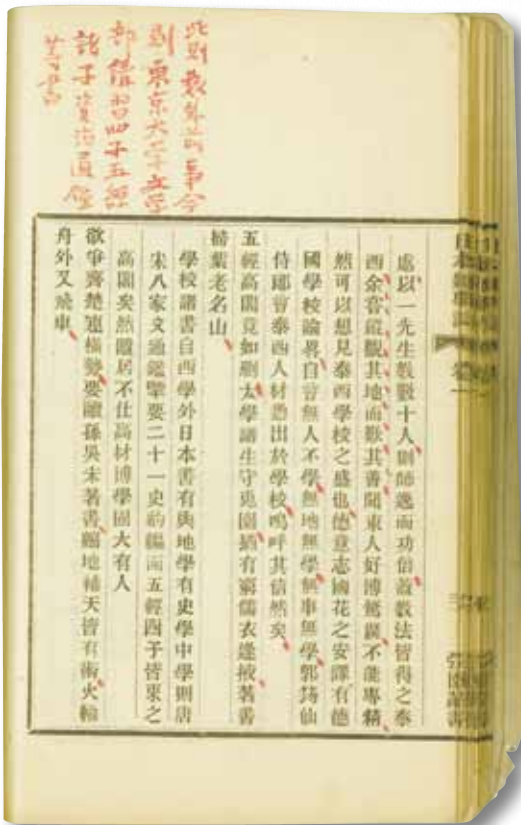 此則教外前事今
則東京大學文學
部講習四子五經
諸子資治通鑑
等書
處以一先生教數十人則師逸而功倍蓋教法皆得之泰
西余嘗從觀其地而歎其善聞東人好博騖廣不能專精
然可以想見泰西學校之盛也德意志國花之安譯有德
國學校論畧自言無人不學無地無學無事無學郭筠仙
侍郎嘗泰西人材悉出於學校嗚呼其信然矣
五經高閣竟如刪太學諸生守兔園猶有窮儒衣逢掖著書
掃葉老名山
學校諸書自西學外日本書有輿地學有史學中學則唐
宋八家文通鑑擥要二十一史約編而五經四子皆束之
高閣矣然隱居不仕高材博學固大有人
欲爭齊楚連橫勢要讀孫吳未著書縮地補天皆有術火輪
舟外又飛車